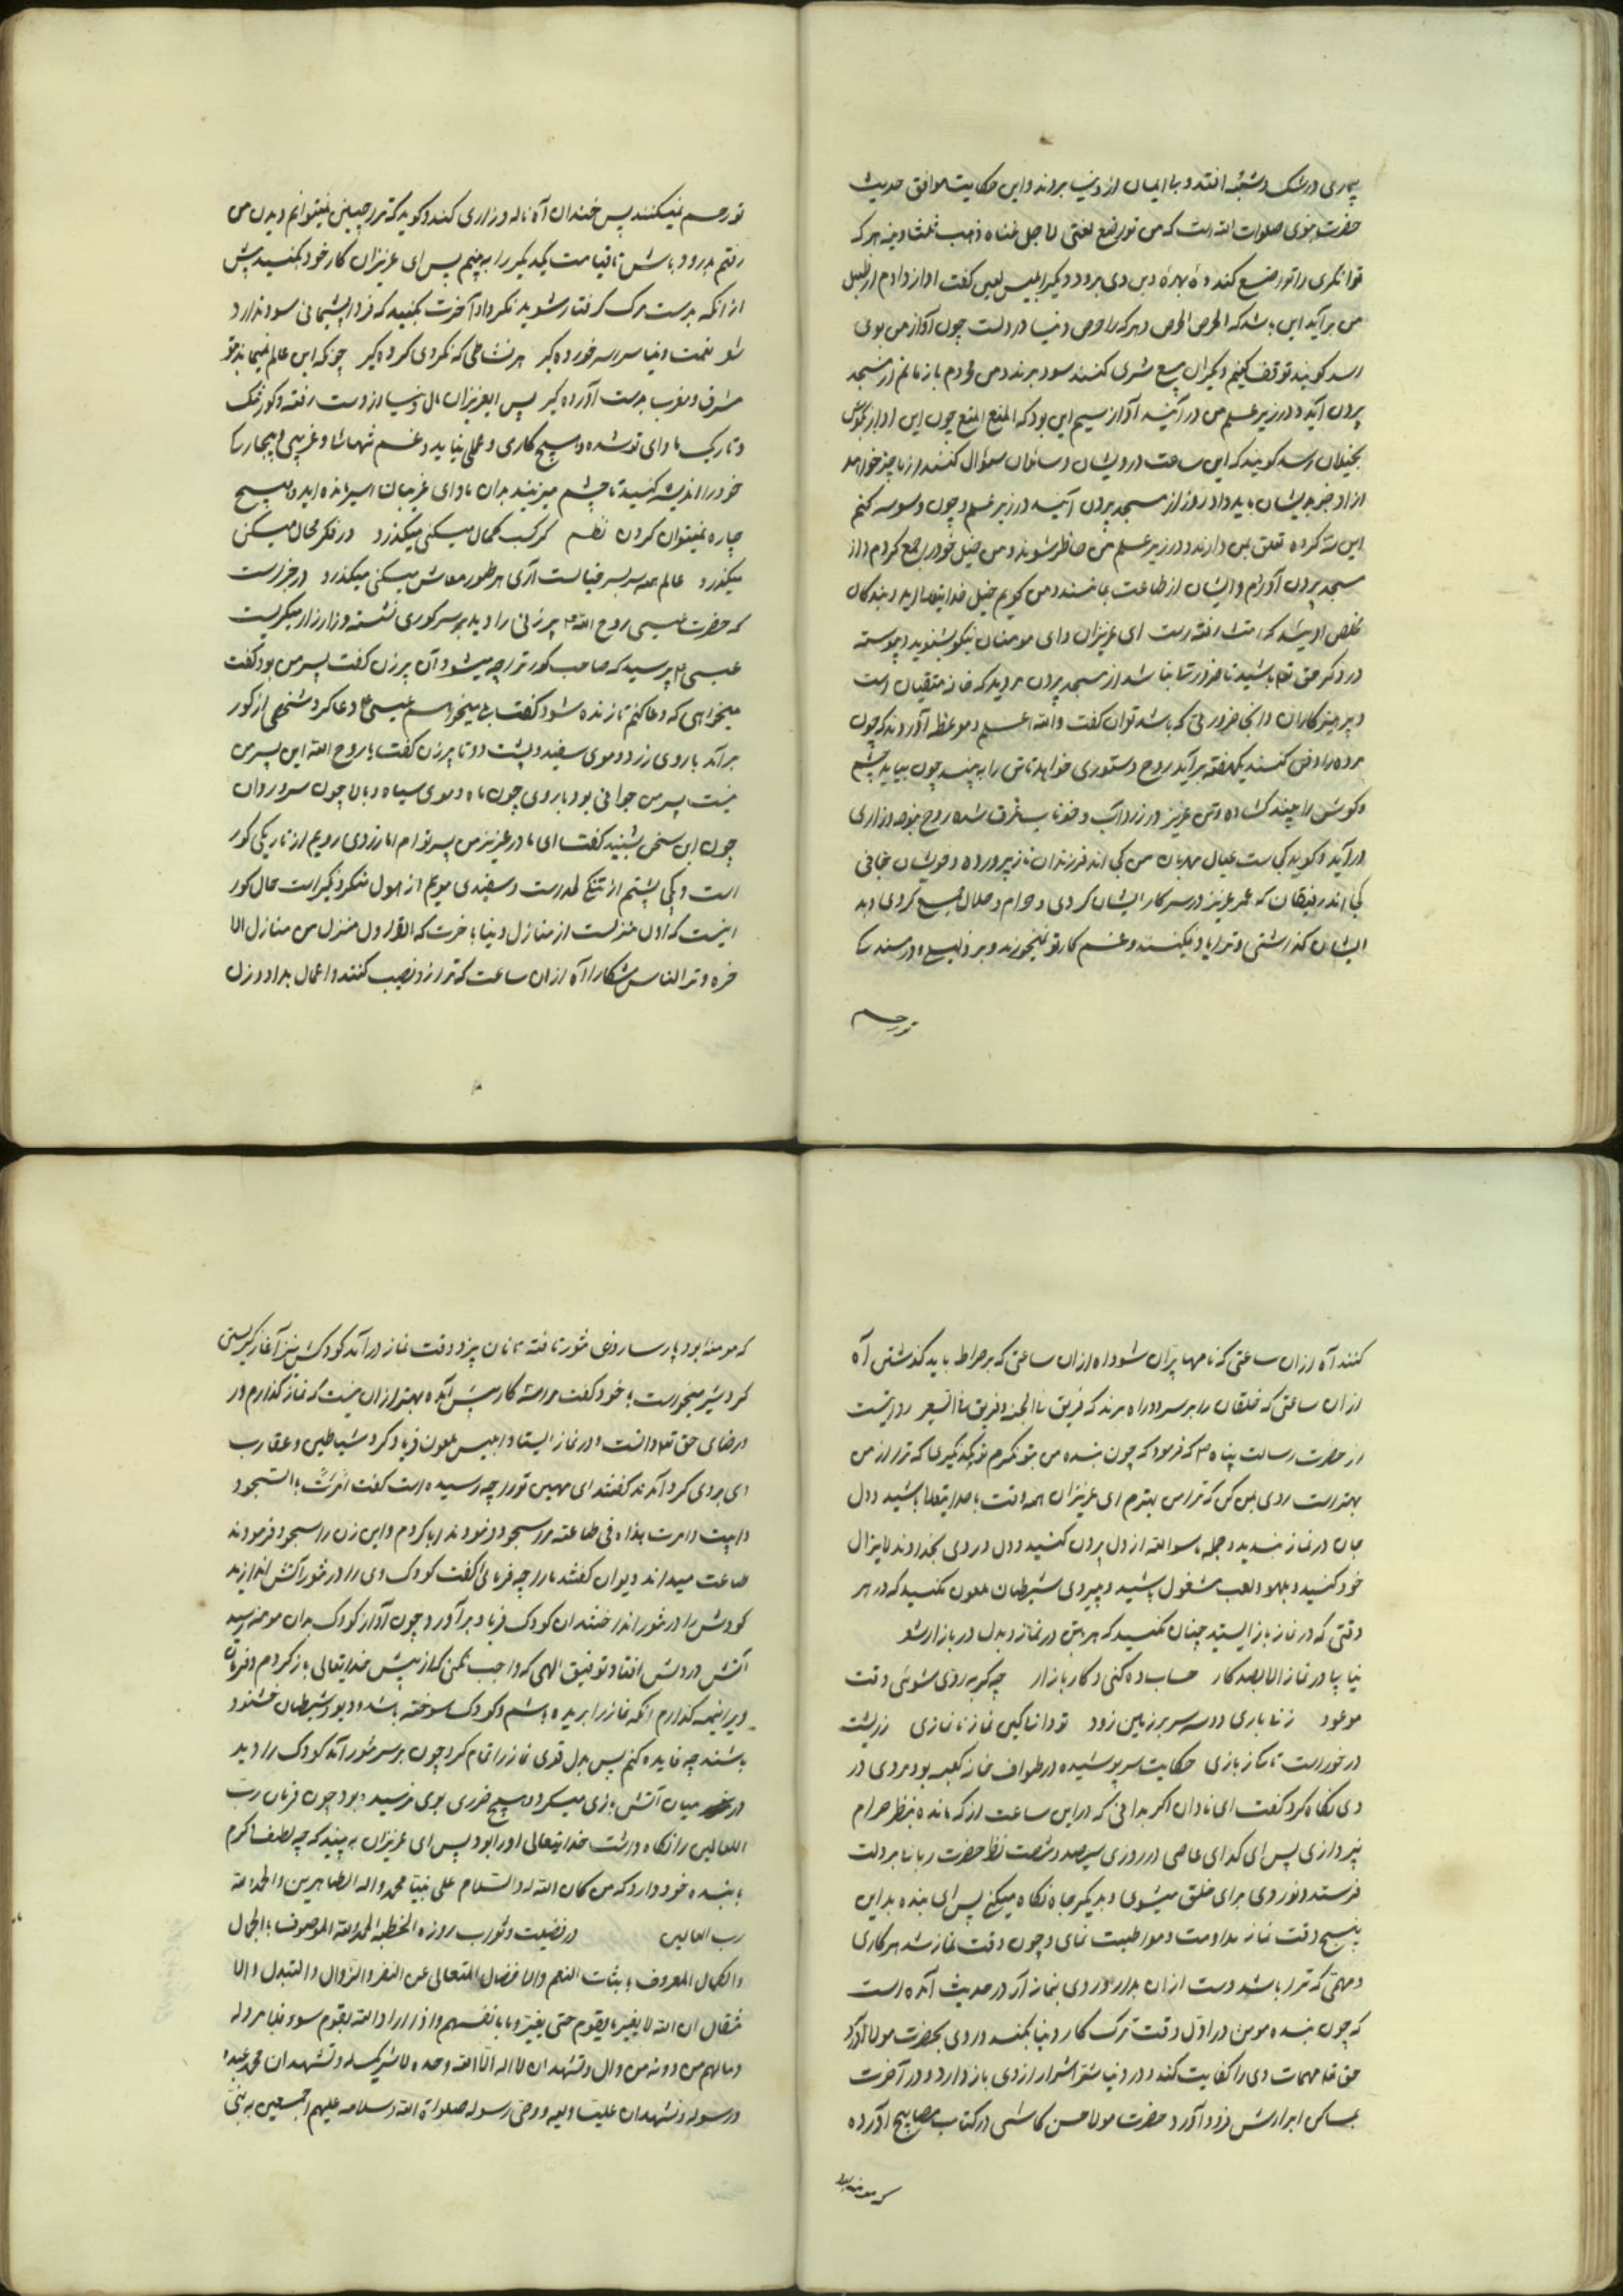 بیماری در شک و شبهه افتد و با ایمان از دنیا بروند و این حکایت موافق حدیث
حضرت نبوی صلوات الله است که من تواضع لغنی لاجل غناه ذهب ثلثا دینه هر که
توانگری را تواضع کند دو بهره دین وی برود دیگر ابلیس لعین گفت آواز دادم از طبل
من برآید این باشد که الحرص الحرص و هر که را حرص دنیا در دلست چون آواز من بوی
رسد گویند توقف کنیم دیگران بیع شری کنند سود برند و من محروم باز مانم از مسجد
بیرون آید و در زیر علم من در آیند آواز سیم این بود که المنع المنع چون این آواز بگوش
بخیلان رسد گویند که این ساعت درویشان و سائلان سؤال کنند از ما چیز خواهند
از او خبر بدیشان باید داد زود از مسجد بیرون آیند در زیر علم و چون وسوسه کنم
این سه گروه تعلق بمن دارند و در زیر علم من حاضر شوند و من خیل خود را جمع کردم و از
مسجد بیرون آوردم و ایشان از طاعت بماندند و من گویم خیل خدایتعالی و بندگان
مخلص او شد که رفته است ای عزیزان و ای مومنان نیکو بشنوید و پیوسته
در ذکر حق تع باشید تا ضرورت نباشد از مسجد بیرون مروید که خانه متقیان است
و پرهیزکاران و آنجا ضرورتی که باشد توان گفت والله اعلم و موعظه آورده‌اند که چون
مرده را دفن کنند یکهفته برآید روح دستوری خواهد تا تن را به بیند چون بیاید چشم
و گوش را بیند گشاده و تن عزیز در زرداب و خوناب غرق شده روح بنوحه و زاری
درآید و گوید کجاست عیال مهربان من کجا اند فرزندان ناز پرورده و خویشان جانی
کجا اند رفیقان که عمر عزیز در سر کار ایشان کردی و حرام و حلال جمع کردی و به
ایشان گذاشتی و ترا یاد نمیکنند و غم کار تو نمیخورند و بر
تو رحم
تو رحم نمیکنند پس خندان آه ناله و زاری کند و گوید که ترا چنین نمیتوانم دیدن من
رفتم بدرود باش تا قیامت یکدیگر را به بینم پس ای عزیزان کار خود بکنید پیش
از آنکه بدست مرگ گرفتار شوید فکر داد آخرت بکنید که فردا پشیمانی سود ندارد
شعر نعمت دنیا سراسر خورده گیر هر نشاطی که نکردی کرده گیر چونکه این عالم نمیماند بتو
مشرق و مغرب بدست آورده گیر پس ایعزیزان مال دنیا از دست رفته و گور تنگ
و تاریک ماوای تو شده و هیچ کاری و عملی نیاید و غم تنهاها و غریبی و بیچارگی
خود را اندیشه کنید تا چشم میزنید بدان ماوای غریبان اسیر مانده‌اید و هیچ
چاره نمیتوان کردن نظم گر کسب کمال میکنی میگذرد ور فکر محال میکنی
میگذرد عالم همه سربسر خیالست آری هر طور معاش میکنی میگذرد در خبر است
که حضرت عیسی روح الله ع پیر زنی را دید بر سر گوری نشسته و زار زار میگریست
عیسی ع پرسید که صاحب گور ترا چه میشود آن پیر زن گفت پسر من بود گفت
میخواهی که دعا کنم تا زنده شود گفت بلی میخواهم عیسی ع دعا کرد شخصی از گور
برآمد با روی زرد و موی سفید و پشت دو تا پیر زن گفت یا روح الله این پسر من
نیست پسر من جوانی بود با روی چون ماه و موی سیاه و بالا چون سرو روان
چون این سخن بشنید گفت ای مادر عزیز من پسر تو ام اما زردی رویم از تاریکی گور
است و کجی پشتم از تنگی لحد است و سفیدی مویم از هول منکر و نکیر است حال گور
اینست که اول منزلست از منازل دنیا بآخرت که القبر اول منزل من منازل الا
خرة و ترا الناس سکارا آه از آن ساعت که ترازو نصب کنند و اعمال بد او وزن
کنند آه از آن ساعتی که نامها پران شود آه از آن ساعتی که بر صراط باید گذشتن آه
از آن ساعتی که خلقان را بر سر دو راه برند که فریق فی الجنة و فریق فی السعیر روایتست
از حضرت رسالت پناه ص که فرمود که چون بنده من بتو نگرم تو بکه نگری که ترا از من
بهتر است روی بمن کن که ترا من بهترم ای عزیزان همه وقت با خدایتعالی باشید و دل
جان در نماز بندید و جمله ما سوا الله از دل بیرون کنید و دل و روی بخداوند لایزال
خود کنید و بلهو و لعب مشغول باشید و پیروی شیطان ملعون نکنید که در هر
وقتی که در نماز باز ایستید چنان نکنید که بدن در نماز و بدل در بازار شعر
نیاید در نماز الا بصد کار حساب ده کنی و کار بازار چه گربه روی شوئی وقت
موعود زنا باری دو سه سر بر زمین زود تو دانا کین نماز نانمازی زریست
در خور است تا نگار بازی حکایت سر پوشیده در طواف خانه کعبه بود مردی در
وی نگاه کرد گفت ای نادان اگر بدانی که در این ساعت از که مانده بنظر حرام
نپردازی پس ای گدای عاصی در روزی سیصد و شصت نظر حضرت ربانا بر دلت
فرستد و تو روی برای خلق میشوی و بدیگر جاه نگاه میکنی پس ای بنده بد این
پنج وقت نماز مداومت و مواظبت نمای و چون وقت نماز شد هر کاری
و مهمی که ترا باشد دست از آن بدار و روی بنماز آر در حدیث آمده است
که چون بنده مومن در اول وقت ترک کار دنیا بکند و روی بحضرت مولا آورد
حق تع مهمات وی را کفایت کند و در دنیا شر اشرار از وی باز دارد و در آخرت
بمساکن ابرارش فرود آورد حضرت مولا حسن کاشی در کتاب مصابیح آورده
که مومنه بود
که مومنه بود پارسا روزی تنور تافته تا نان پزد وقت نماز درآمد کودکش نیز آغاز گریستن
کرد شیر میخواست با خود گفت مرا سه کار پیش آمده بهتر از آن نیست که نماز گذارم و در
رضای حق تع دانست و در نماز ایستاد ابلیس ملعون فریاد کرد شیاطین و عقارب
ای بر وی گرد آمدند گفتند ای مهین تو را چه رسیده است گفت امرت بالسجود
و ابیت و امرت بهذاه فی طاعته مرا سجود فرمودند ابا کردم و این زن را سجود فرمودند
طاعت میداند دیوان گفتند ما را چه فرمائی گفت کودک وی را در تنور آتش اندازند
کودکش را در تنور انداختند آن کودک فریاد برآورد چون آواز کودک بدان مومنه رسید
آتش در دلش افتاد و توفیق الهی که واجب نکنی که از پیش خدایتعالی باز گردم و فرمان
ویرا نیمه گذارم آنکه نماز را بریده باشم و کودک سوخته باشد و دیو و شیطان خشنود
باشند چه فایده کنم پس بدل قوی نماز را تمام کرد چون بر سر تنور آمد کودک را دید
در میان آتش بازی میکرد و هیچ ضرری بوی نرسیده بود چون فرمان رب
العالمین را نگاه داشت خدایتعالی او را بود پس ای عزیزان به بینید که چه لطف و کرم
با بنده خود دارد که من کان لله له و السلام علی نبینا محمد و اله الطاهرین و الحمد لله
رب العالمین در فضیلت و ثواب روزه الخطبه الحمد لله الموصوف بالجمال
والکمال المعروف بثبات النعم والافضال المتعالی عن النقر والزوال والتبدل والا
نتقال ان الله لا یغیر ما بقوم حتی یغیروا ما بانفسهم و اذا اراد الله بقوم سوءً فلا مرد له
و مالهم من دونه من وال و تشهد ان لا اله الا الله وحده لا شریک له و تشهد ان محمد عبده
و رسوله و تشهد ان علیا ولیه و وصی رسوله صلوات الله و سلامه علیهم اجمعین